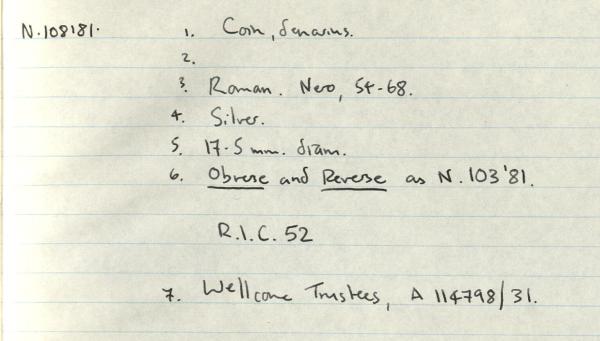 N.108'81.
1. Coin, denarius.
2.
3. Roman. Nero, 54-68.
4. Silver.
5. 17.5 mm. diam.
6. Obverse and Reverse as N.103'81.
R.I.C. 52
7. Wellcome Trustees, A 114798/31.